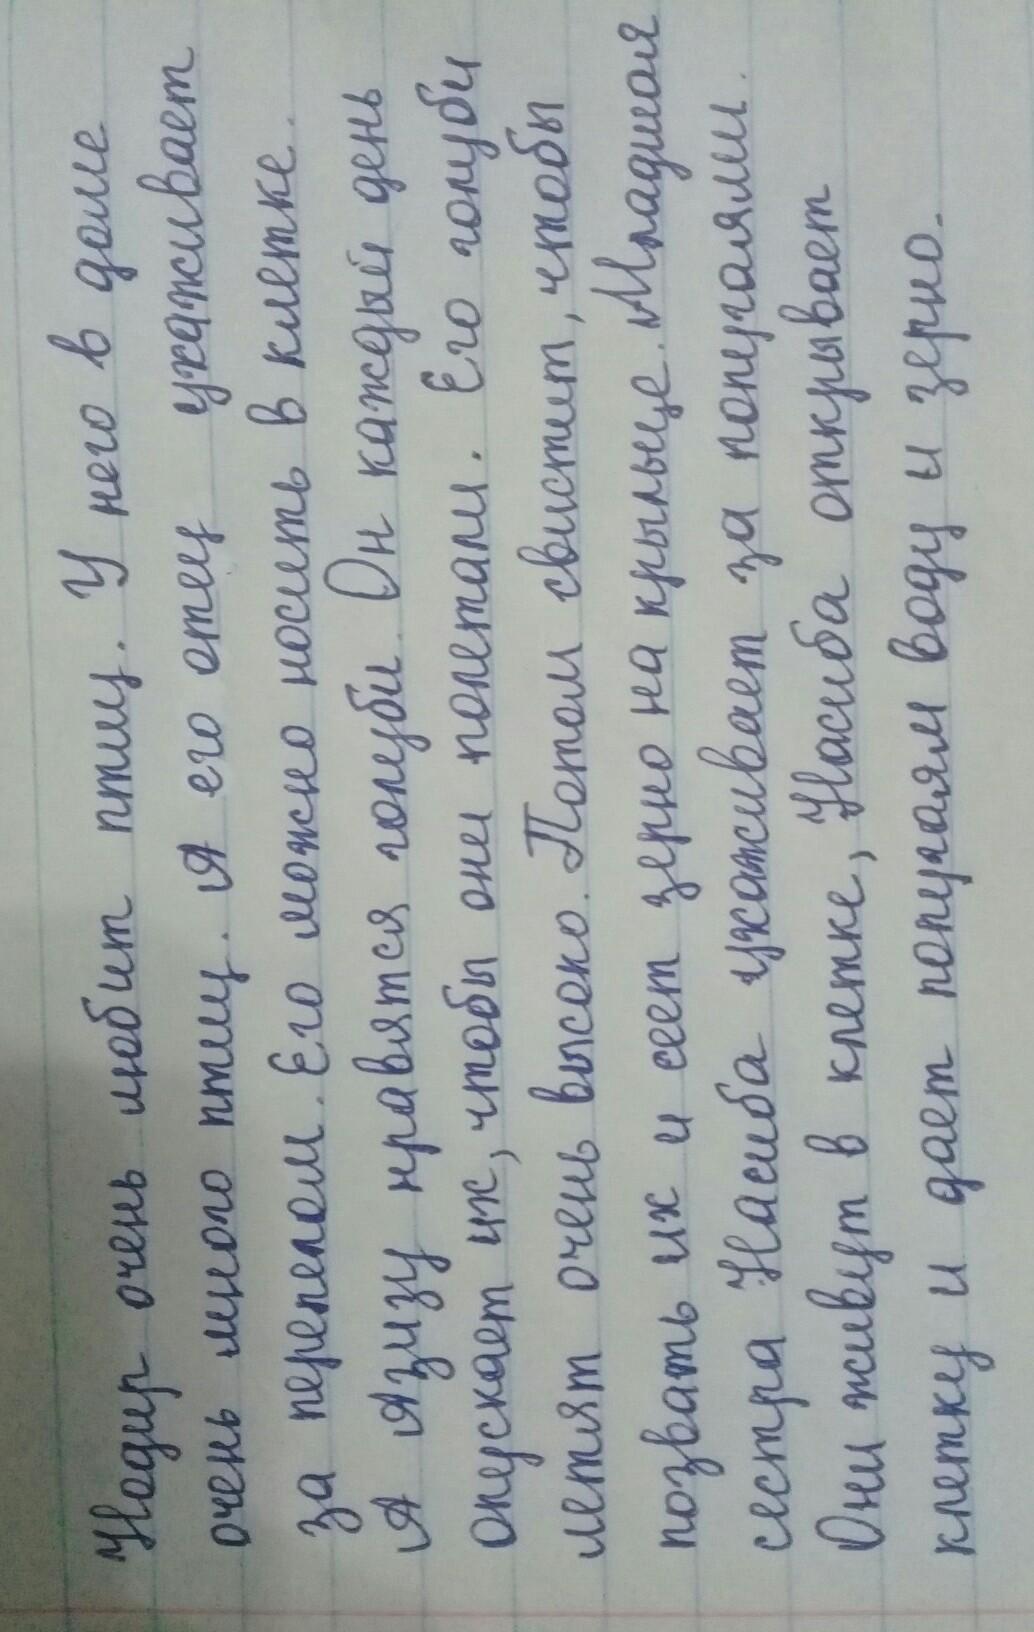 Нодир очень любит птиц. У него в доме
очень много птиц. А его отец ухаживает
за перепелом. Его можно носить в клетке.
А Азизу нравятся голуби. Он каждый день
опускает их, чтобы они полетали. Его голуби
летят очень высоко. Потом свистит, чтобы
позвать их и сеет зерно на крыльце. Младшая
сестра Насиба ухаживает за попугаями.
Они живут в клетке, Насиба открывает
клетку и дает попугаям воду и зерно.